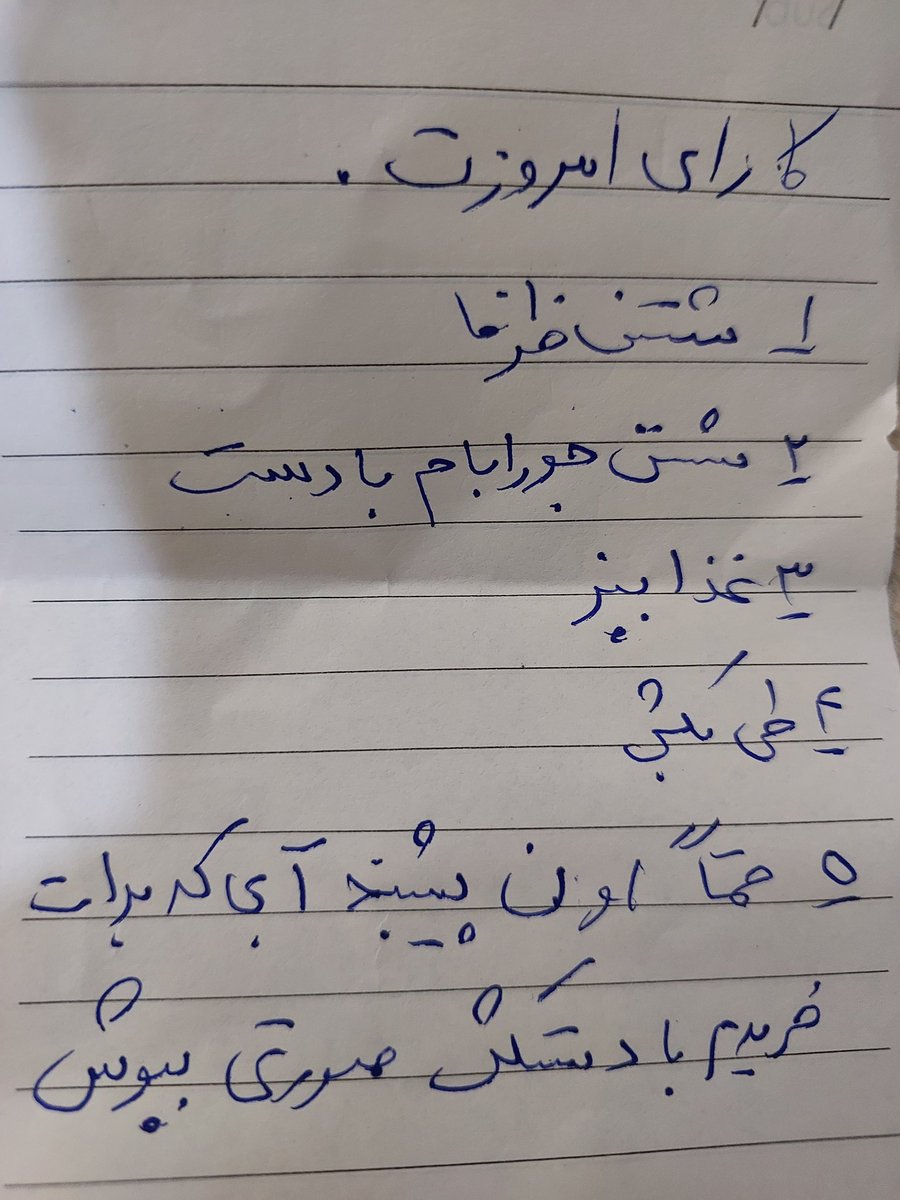 کارای امروزت .
۱ شستن ظرفا
۲ شستن جورابام با دست
۳ غذا بپز
۴ طی بکش
۵ حتماً اون پیشبند آبی که برات
خریدم با دستکش صورتی بپوش